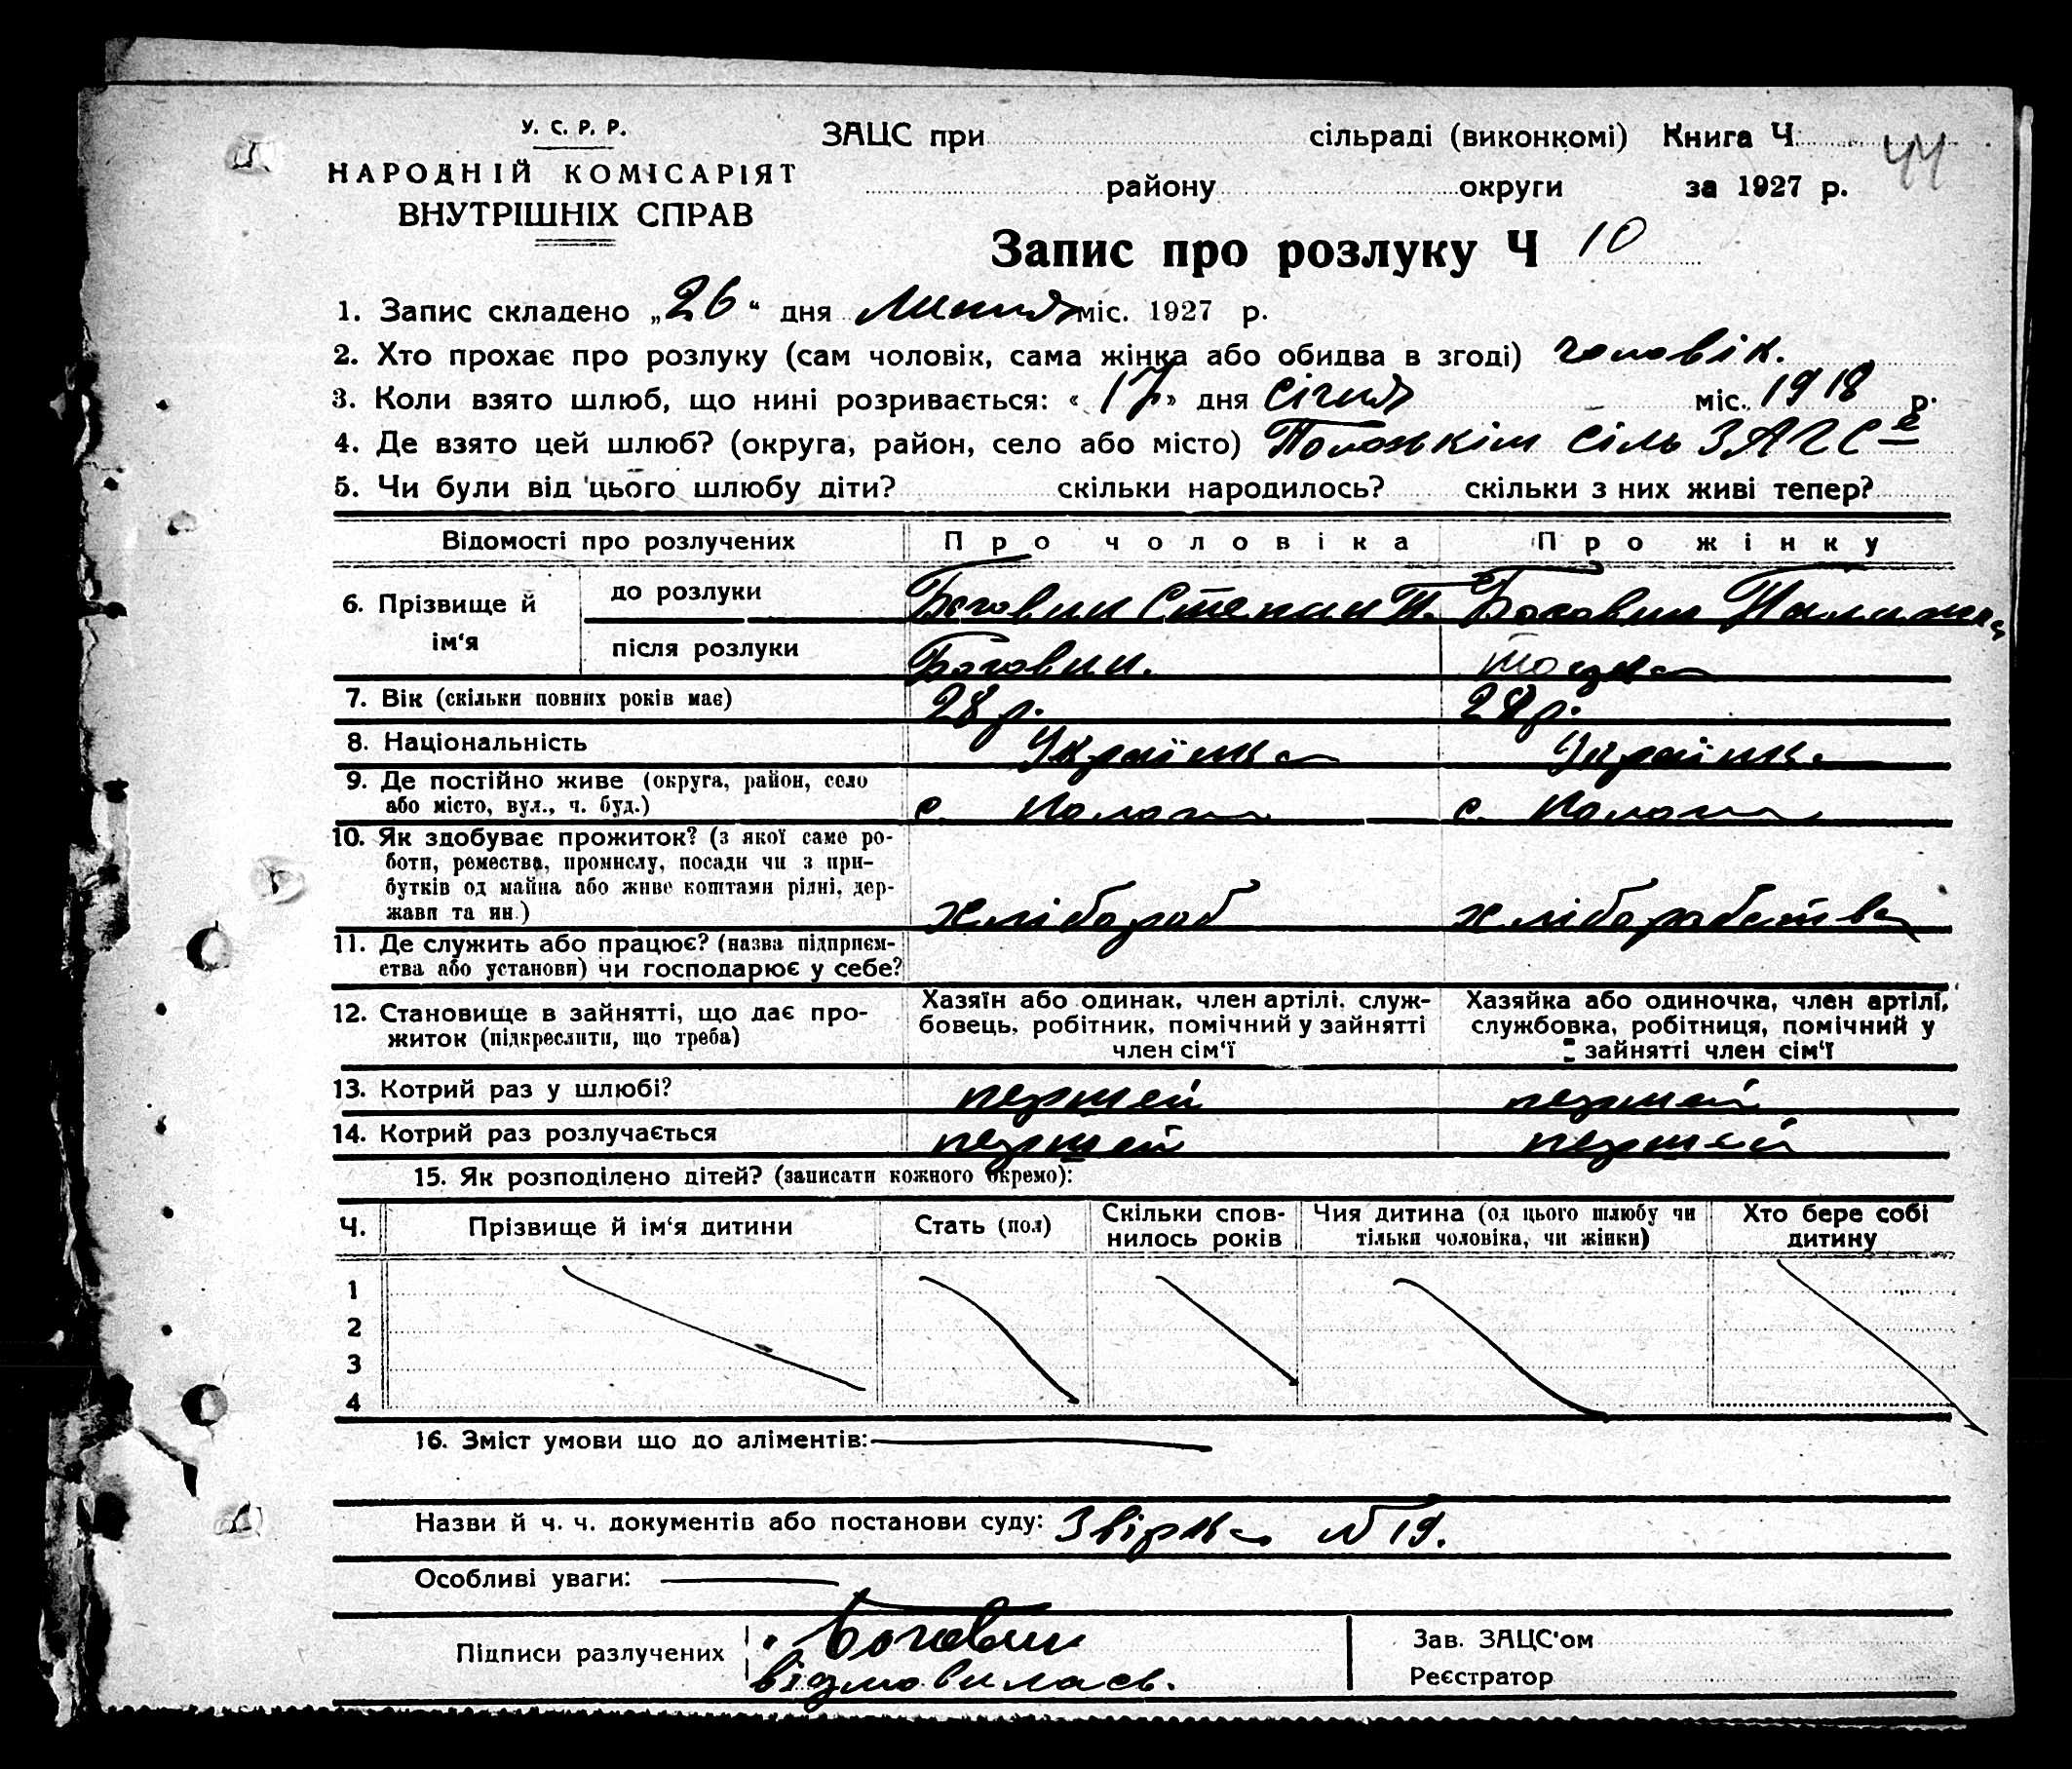 У. С. Р. Р.
НАРОДНІЙ КОМІСАРІЯТ
ВНУТРІШНІХ СПРАВ
ЗАЦС при сільраді (виконкомі) Книга Ч. 44
району округи за 1927 р.
Запис про розлуку Ч 10
1. Запис складено „26“ дня Липня міс. 1927 р.
2. Хто прохає про розлуку (сам чоловік, сама жінка або обидва в згоді) чоловік.
3. Коли взято шлюб, що нині розривається: «17» дня січня міс. 1918 р.
4. Де взято цей шлюб? (округа, район, село або місто) сіль ЗАГСе
5. Чи були від цього шлюбу діти? скільки народилось? скільки з них живі тепер?
Відомості про розлучених Про чоловіка Про жінку
6. Прізвище й ім‘я до розлуки Боговин Степан П. Боговин
після розлуки Боговин. тоєж
7. Вік (скільки повних років має) 28 р. 28 р.
8. Національність Українка Українка
9. Де постійно живе (округа, район, село
або місто, вул., ч. буд.) с. с.
10. Як здобуває прожиток? (з якої саме ро-
боти, ремества, промислу, посади чи з при-
бутків од майна або живе коштами рідні, дер-
жави та ин.) хлібороб хліборобство
11. Де служить або працює? (назва підприєм-
ства або установи) чи господарює у себе?
12. Становище в зайнятті, що дає про-
житок (підкреслити, що треба)
Хазяїн або одинак, член артілі, служ-
бовець, робітник, помічний у зайнятті
член сім‘ї
Хазяйка або одиночка, член артілі,
службовка, робітниця, помічний у
зайнятті член сім‘ї
13. Котрий раз у шлюбі? першей першей
14. Котрий раз розлучається першей першей
15. Як розподілено дітей? (записати кожного окремо):
Ч. Прізвище й ім‘я дитини Стать (пол) Скільки спов-
нилось років Чия дитина (од цього шлюбу чи
тільки чоловіка, чи жінки) Хто бере собі
дитину
1
2
3
4
16. Зміст умови що до аліментів:
Назви й ч. ч. документів або постанови суду: Звірка № 19.
Особливі уваги:
Підписи разлучених Боговин
відмовилась.
Зав. ЗАЦС'ом
Реєстратор